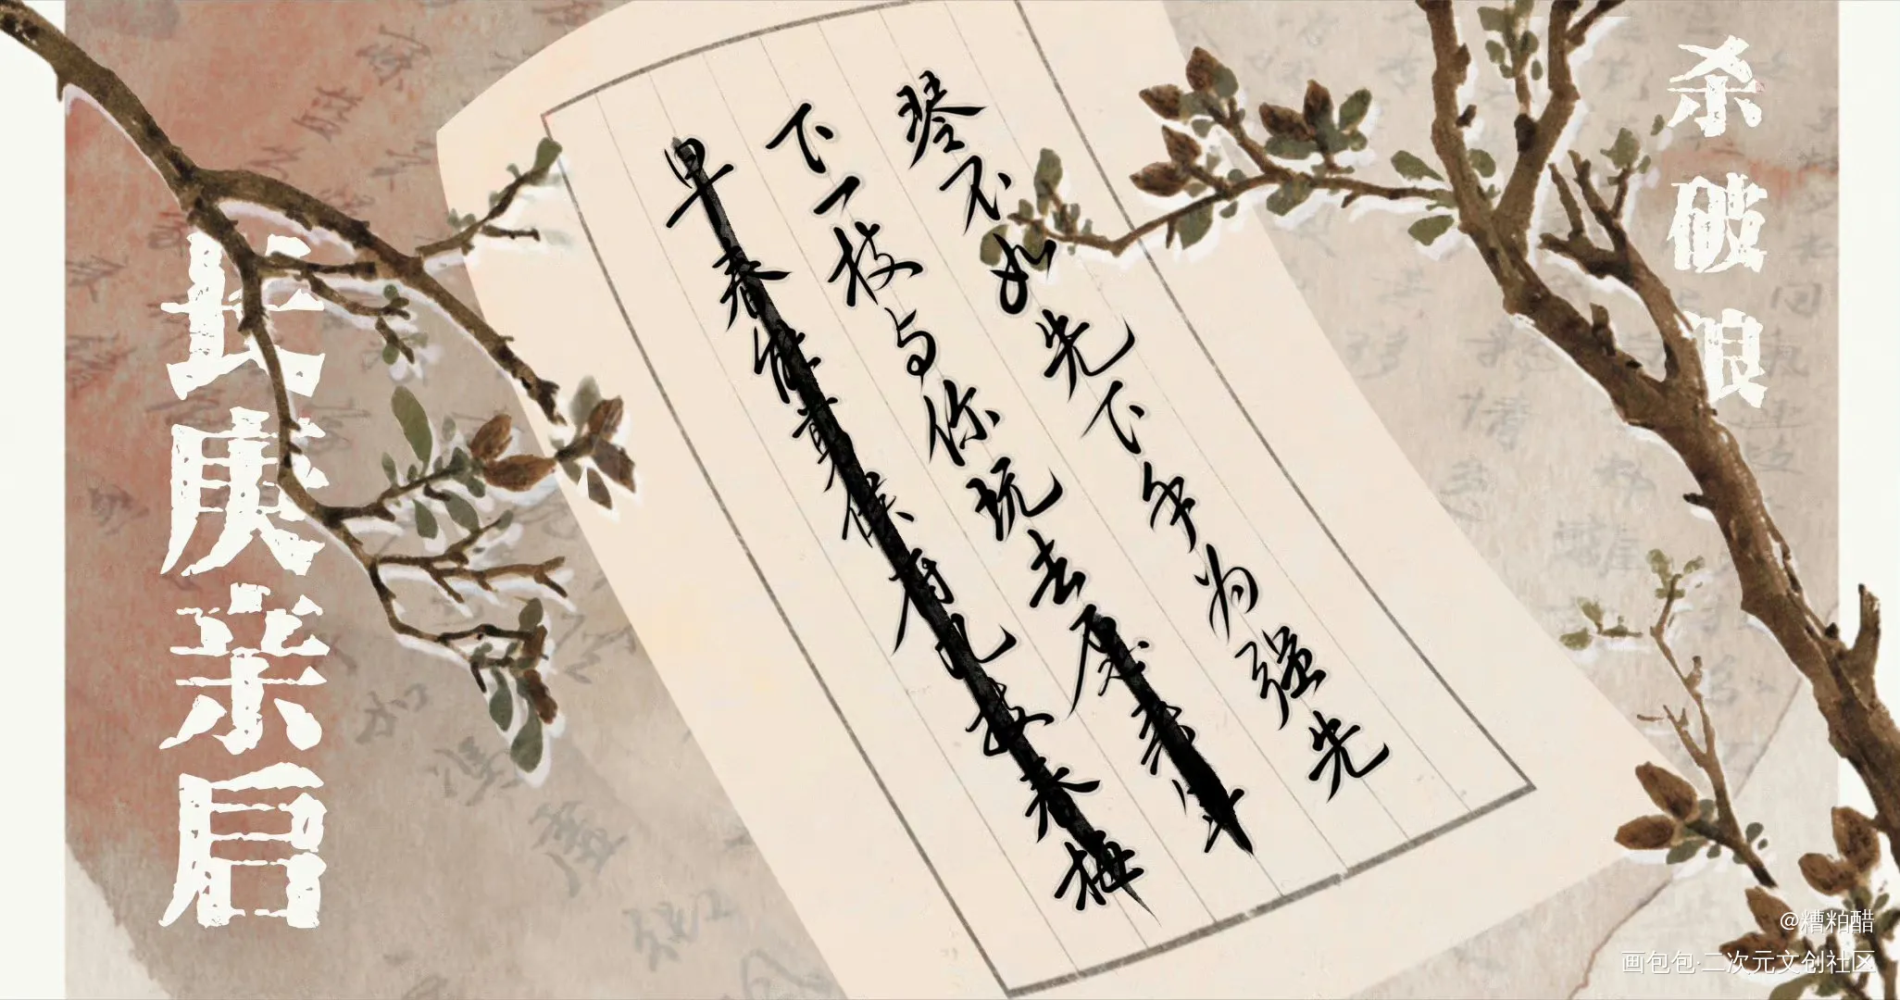 杀破狼
不如先下手为强先
下一枝与你玩去
早春侯有几枝春梅
长庚亲启
@糟粕醋
画包包·二次元文创社区